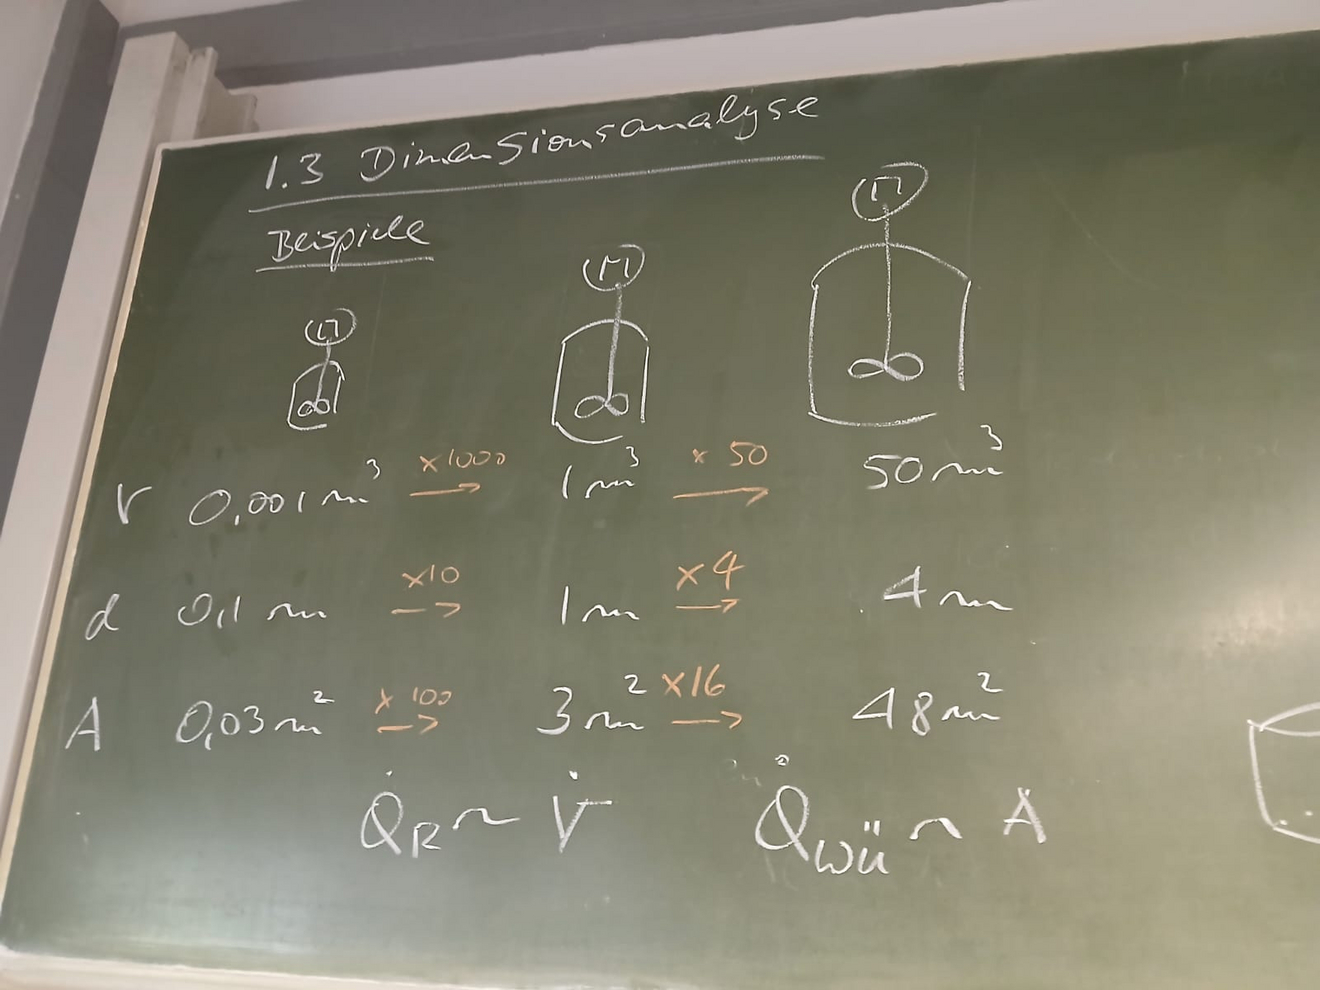 1.3 Dimensionsanalyse
Beispiele
M M M
V 0,001 m³ x1000 → 1 m³ x 50 → 50 m³
d 0,1 m x10 → 1 m x4 → 4 m
A 0,03 m² x 100 → 3 m² x16 → 48 m²
Q̇R ~ V̇ Q̇Wü ~ A